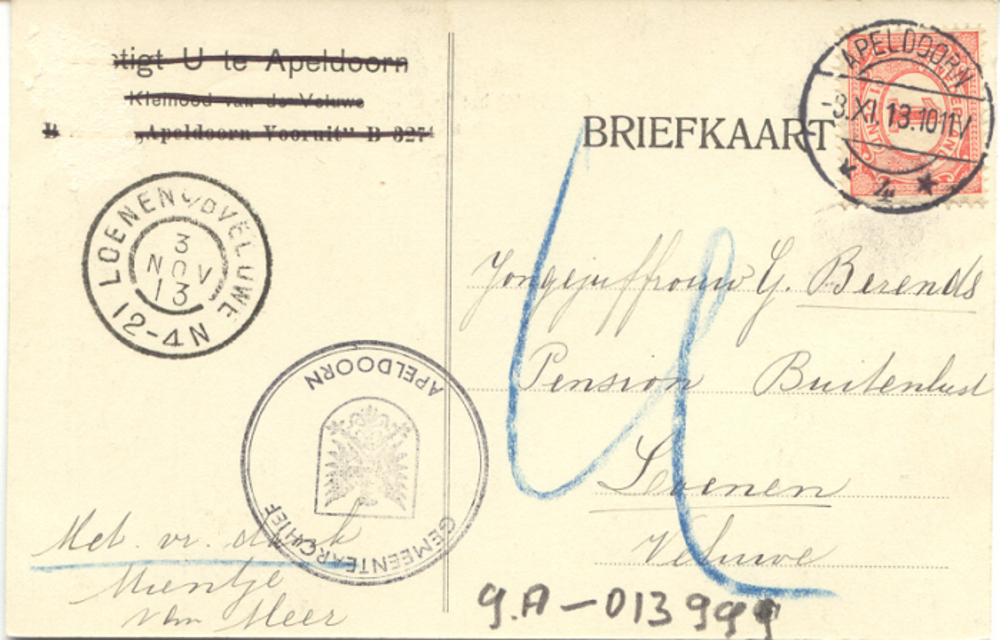 tigt U te Apeldoorn
Kleinood van de Veluwe
„Apeldoorn Vooruit" B 327
BRIEFKAART
APELDOORN
-3.XI.13.1011V
4
LOENEN OP D VELUWE
3
NOV
13
12-4N
GEMEENTEARCHIEF
APELDOORN
Jongejuffrouw G. Berends
Pension Buitenlust
Loenen
Veluwe
Met. vr. dank
Mientje
van Meer
g.A-013999